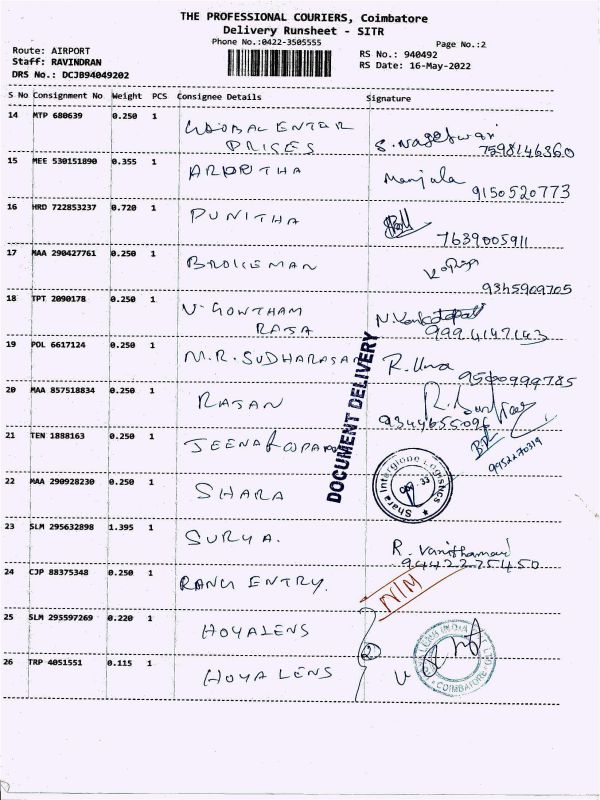 THE PROFESSIONAL COURIERS, Coimbatore
Delivery Runsheet - SITR
Phone No.:0422-3505555
Page No.:2
Route: AIRPORT
Staff: RAVINDRAN
DRS No.: DCJB94049202
RS No.: 940492
RS Date: 16-May-2022
S No Consignment No Weight PCS Consignee Details Signature
14 MTP 680639 0.250 1 GLOBAL ENTER
PRISES
S. Nageswari
7598146360
15 MEE 530151890 0.355 1 ARPITHA Manjula
9150520773
16 HRD 722853237 0.720 1 PUNITHA
7639005911
17 MAA 290427761 0.250 1 BROKEMAN
9345909705
18 TPT 2090178 0.250 1 V. GOWTHAM
RAJA
9994147143
19 POL 6617124 0.250 1 M.R. SUDHARASAN R. Uma
9500999785
20 MAA 857518834 0.250 1 RAJAN
21 TEN 1888163 0.250 1 JEENA
DOCUMENT DELIVERY
22 MAA 290928230 0.250 1 SHARA
Shara Interglobe Logistics
23 SLM 295632898 1.395 1 SURYA. R. Vanithamani
9442275450
24 CJP 88375348 0.250 1 RANU ENTRY. N/M
25 SLM 295597269 0.220 1 HOYALENS
2
26 TRP 4051551 0.115 1 HOYA LENS
COIMBATORE